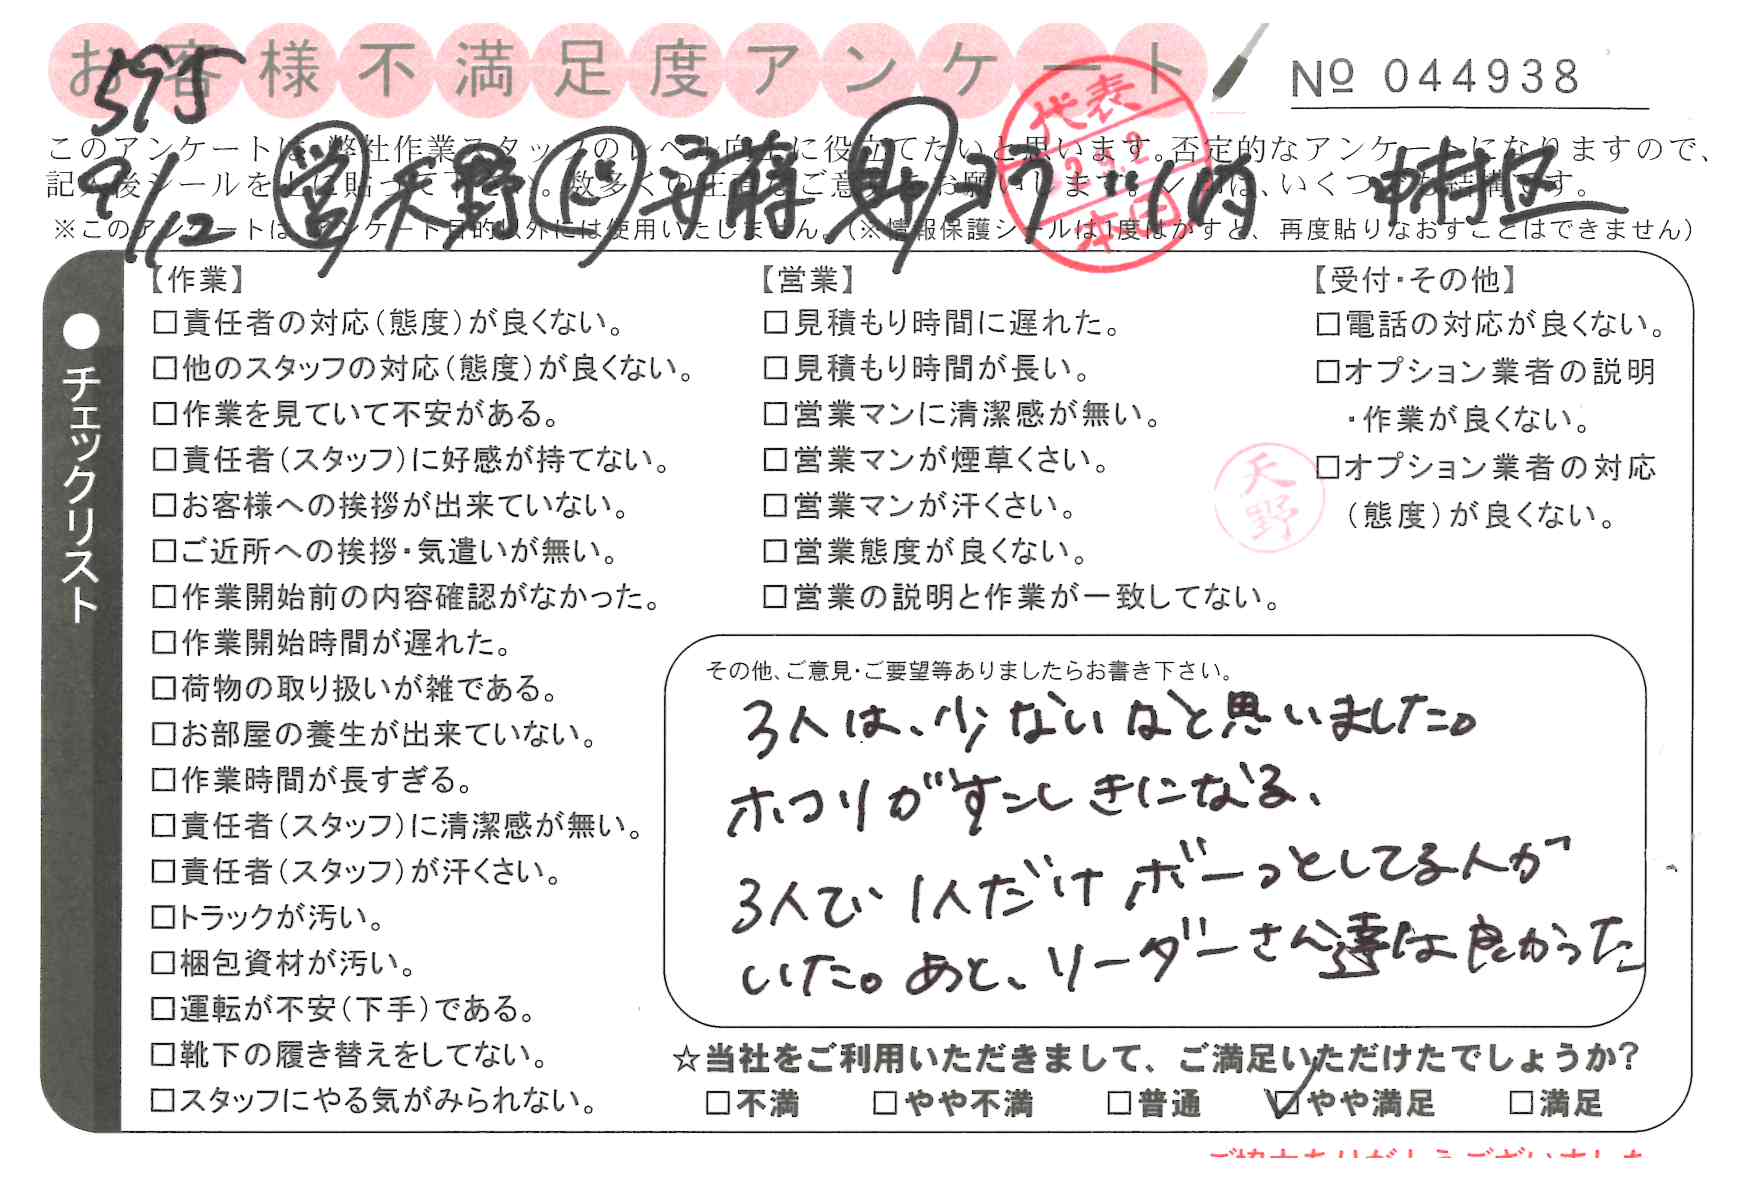 お客様不満足度アンケート
№ 044938
575
このアンケートは、弊社作業スタッフのレベル向上に役立てたいと思います。否定的なアンケートになりますので、
記入後シールを上に貼って下さい。数多くの正直なご意見をお願いします。レ印は、いくつでも結構です。
※このアンケートはアンケート目的以外には使用いたしません。（※情報保護シールは1度はがすと、再度貼りなおすことはできません）
9/12 営 天野 安藤 見 竹内 中村区
代表
本田
●チェックリスト
【作業】
□責任者の対応（態度）が良くない。
□他のスタッフの対応（態度）が良くない。
□作業を見ていて不安がある。
□責任者（スタッフ）に好感が持てない。
□お客様への挨拶が出来ていない。
□ご近所への挨拶・気遣いが無い。
□作業開始前の内容確認がなかった。
□作業開始時間が遅れた。
□荷物の取り扱いが雑である。
□お部屋の養生が出来ていない。
□作業時間が長すぎる。
□責任者（スタッフ）に清潔感が無い。
□責任者（スタッフ）が汗くさい。
□トラックが汚い。
□梱包資材が汚い。
□運転が不安（下手）である。
□靴下の履き替えをしてない。
□スタッフにやる気がみられない。
【営業】
□見積もり時間に遅れた。
□見積もり時間が長い。
□営業マンに清潔感が無い。
□営業マンが煙草くさい。
□営業マンが汗くさい。
□営業態度が良くない。
□営業の説明と作業が一致してない。
【受付・その他】
□電話の対応が良くない。
□オプション業者の説明
・作業が良くない。
□オプション業者の対応
（態度）が良くない。
天野
その他、ご意見・ご要望等ありましたらお書き下さい。
3人は、少ないなと思いました。
ホコリがすこしきになる、
3人で、1人だけボーっとしてる人が
いた。あと、リーダーさん事は良かった
☆当社をご利用いただきまして、ご満足いただけたでしょうか？
□不満 □やや不満 □普通 ☑やや満足 □満足
ご協力ありがとうございました